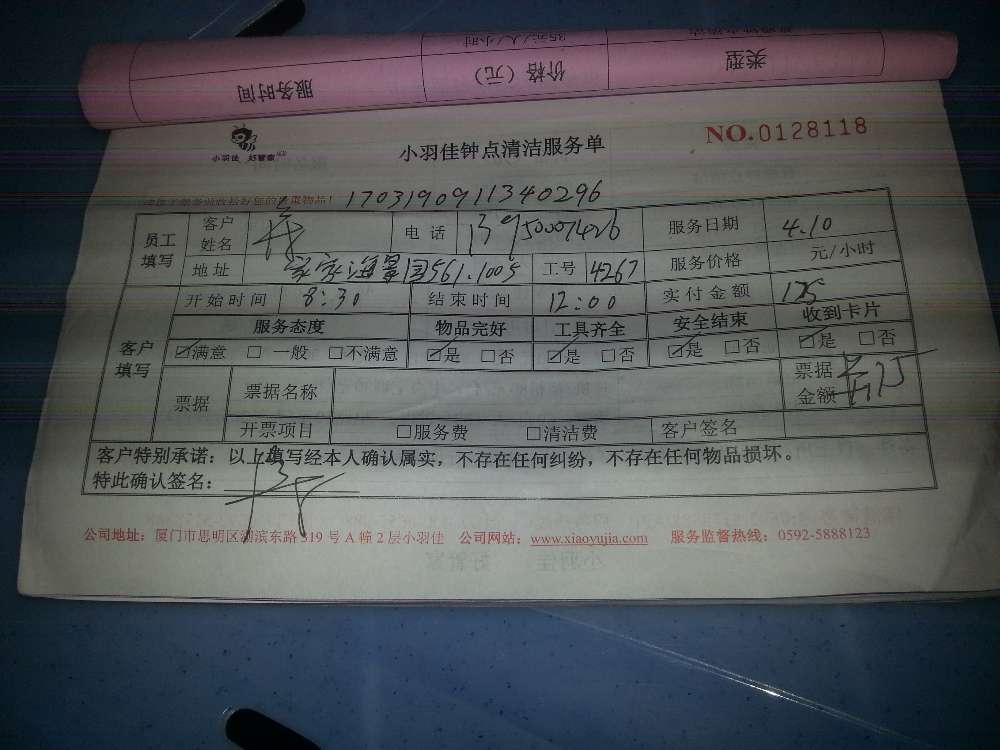 类型 价格（元） 服务时间
小羽佳 好管家
小羽佳钟点清洁服务单
NO.0128118
1703190911340296
员工填写 客户姓名 电话 服务日期 4.10
地址 561.1005 工号 4267 服务价格 元/小时
客户填写 开始时间 8:30 结束时间 12:00 实付金额 125
服务态度 物品完好 工具齐全 安全结束 收到卡片
☑满意 □一般 □不满意 ☑是 □否 ☑是 □否 ☑是 □否 ☑是 □否
票据 票据名称 票据金额
开票项目 □服务费 □清洁费 客户签名
客户特别承诺：以上填写经本人确认属实，不存在任何纠纷，不存在任何物品损坏。
特此确认签名：
公司地址：厦门市思明区湖滨东路319号A幢2层小羽佳 公司网站：www.xiaoyujia.com 服务监督热线：0592-5888123